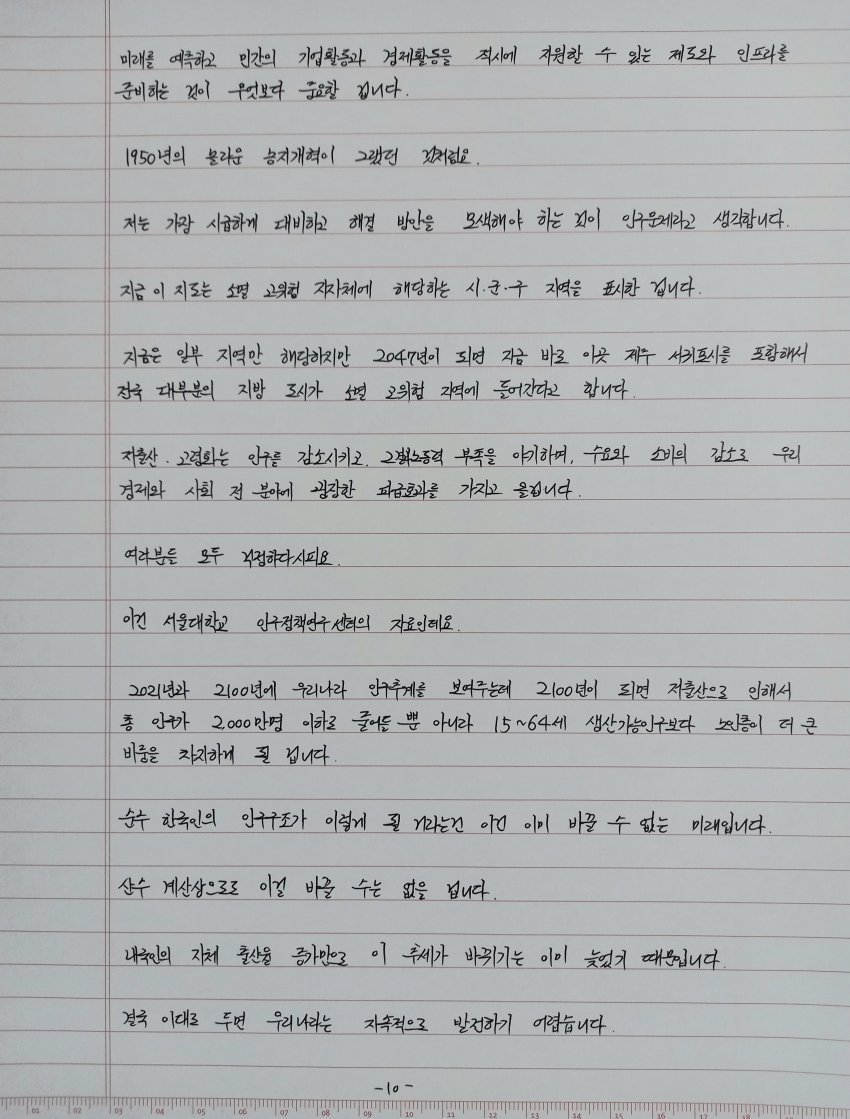 미래를 예측하고 민간의 기업활동과 경제활동을 적시에 지원할 수 있는 제도와 인프라를
준비하는 것이 무엇보다 중요할 겁니다.
1950년의 놀라운 농지개혁이 그랬던 것처럼요.
저는 가장 시급하게 대비하고 해결 방안을 모색해야 하는 것이 인구문제라고 생각합니다.
지금 이 지도는 소멸 고위험 지자체에 해당하는 시·군·구 지역을 표시한 겁니다.
지금은 일부 지역만 해당하지만 2047년이 되면 지금 바로 이곳 제주 서귀포시를 포함해서
전국 대부분의 지방 도시가 소멸 고위험 지역에 들어간다고 합니다.
저출산·고령화는 인구를 감소시키고, 노동력 부족을 야기하며, 수요와 소비의 감소로 우리
경제와 사회 전 분야에 굉장한 파급효과를 가지고 올겁니다.
여러분들 모두 걱정하다시피요.
이건 서울대학교 인구정책연구센터의 자료인데요.
2021년과 2100년에 우리나라 인구추계를 보여주는데 2100년이 되면 저출산으로 인해서
총 인구가 2,000만명 이하로 줄어들 뿐 아니라 15~64세 생산가능인구보다 노인층이 더 큰
비중을 차지하게 될 겁니다.
순수 한국인의 인구구조가 이렇게 될 거라는건 이건 이미 바꿀 수 없는 미래입니다.
산수 계산상으로도 이걸 바꿀 수는 없을 겁니다.
내국인의 자체 출산율 증가만으로 이 추세가 바뀌기는 이미 늦었기 때문입니다.
결국 이대로 두면 우리나라는 지속적으로 발전하기 어렵습니다.
-10-
01 02 03 04 05 06 07 08 09 10 11 12 13 14 15 16 17 18